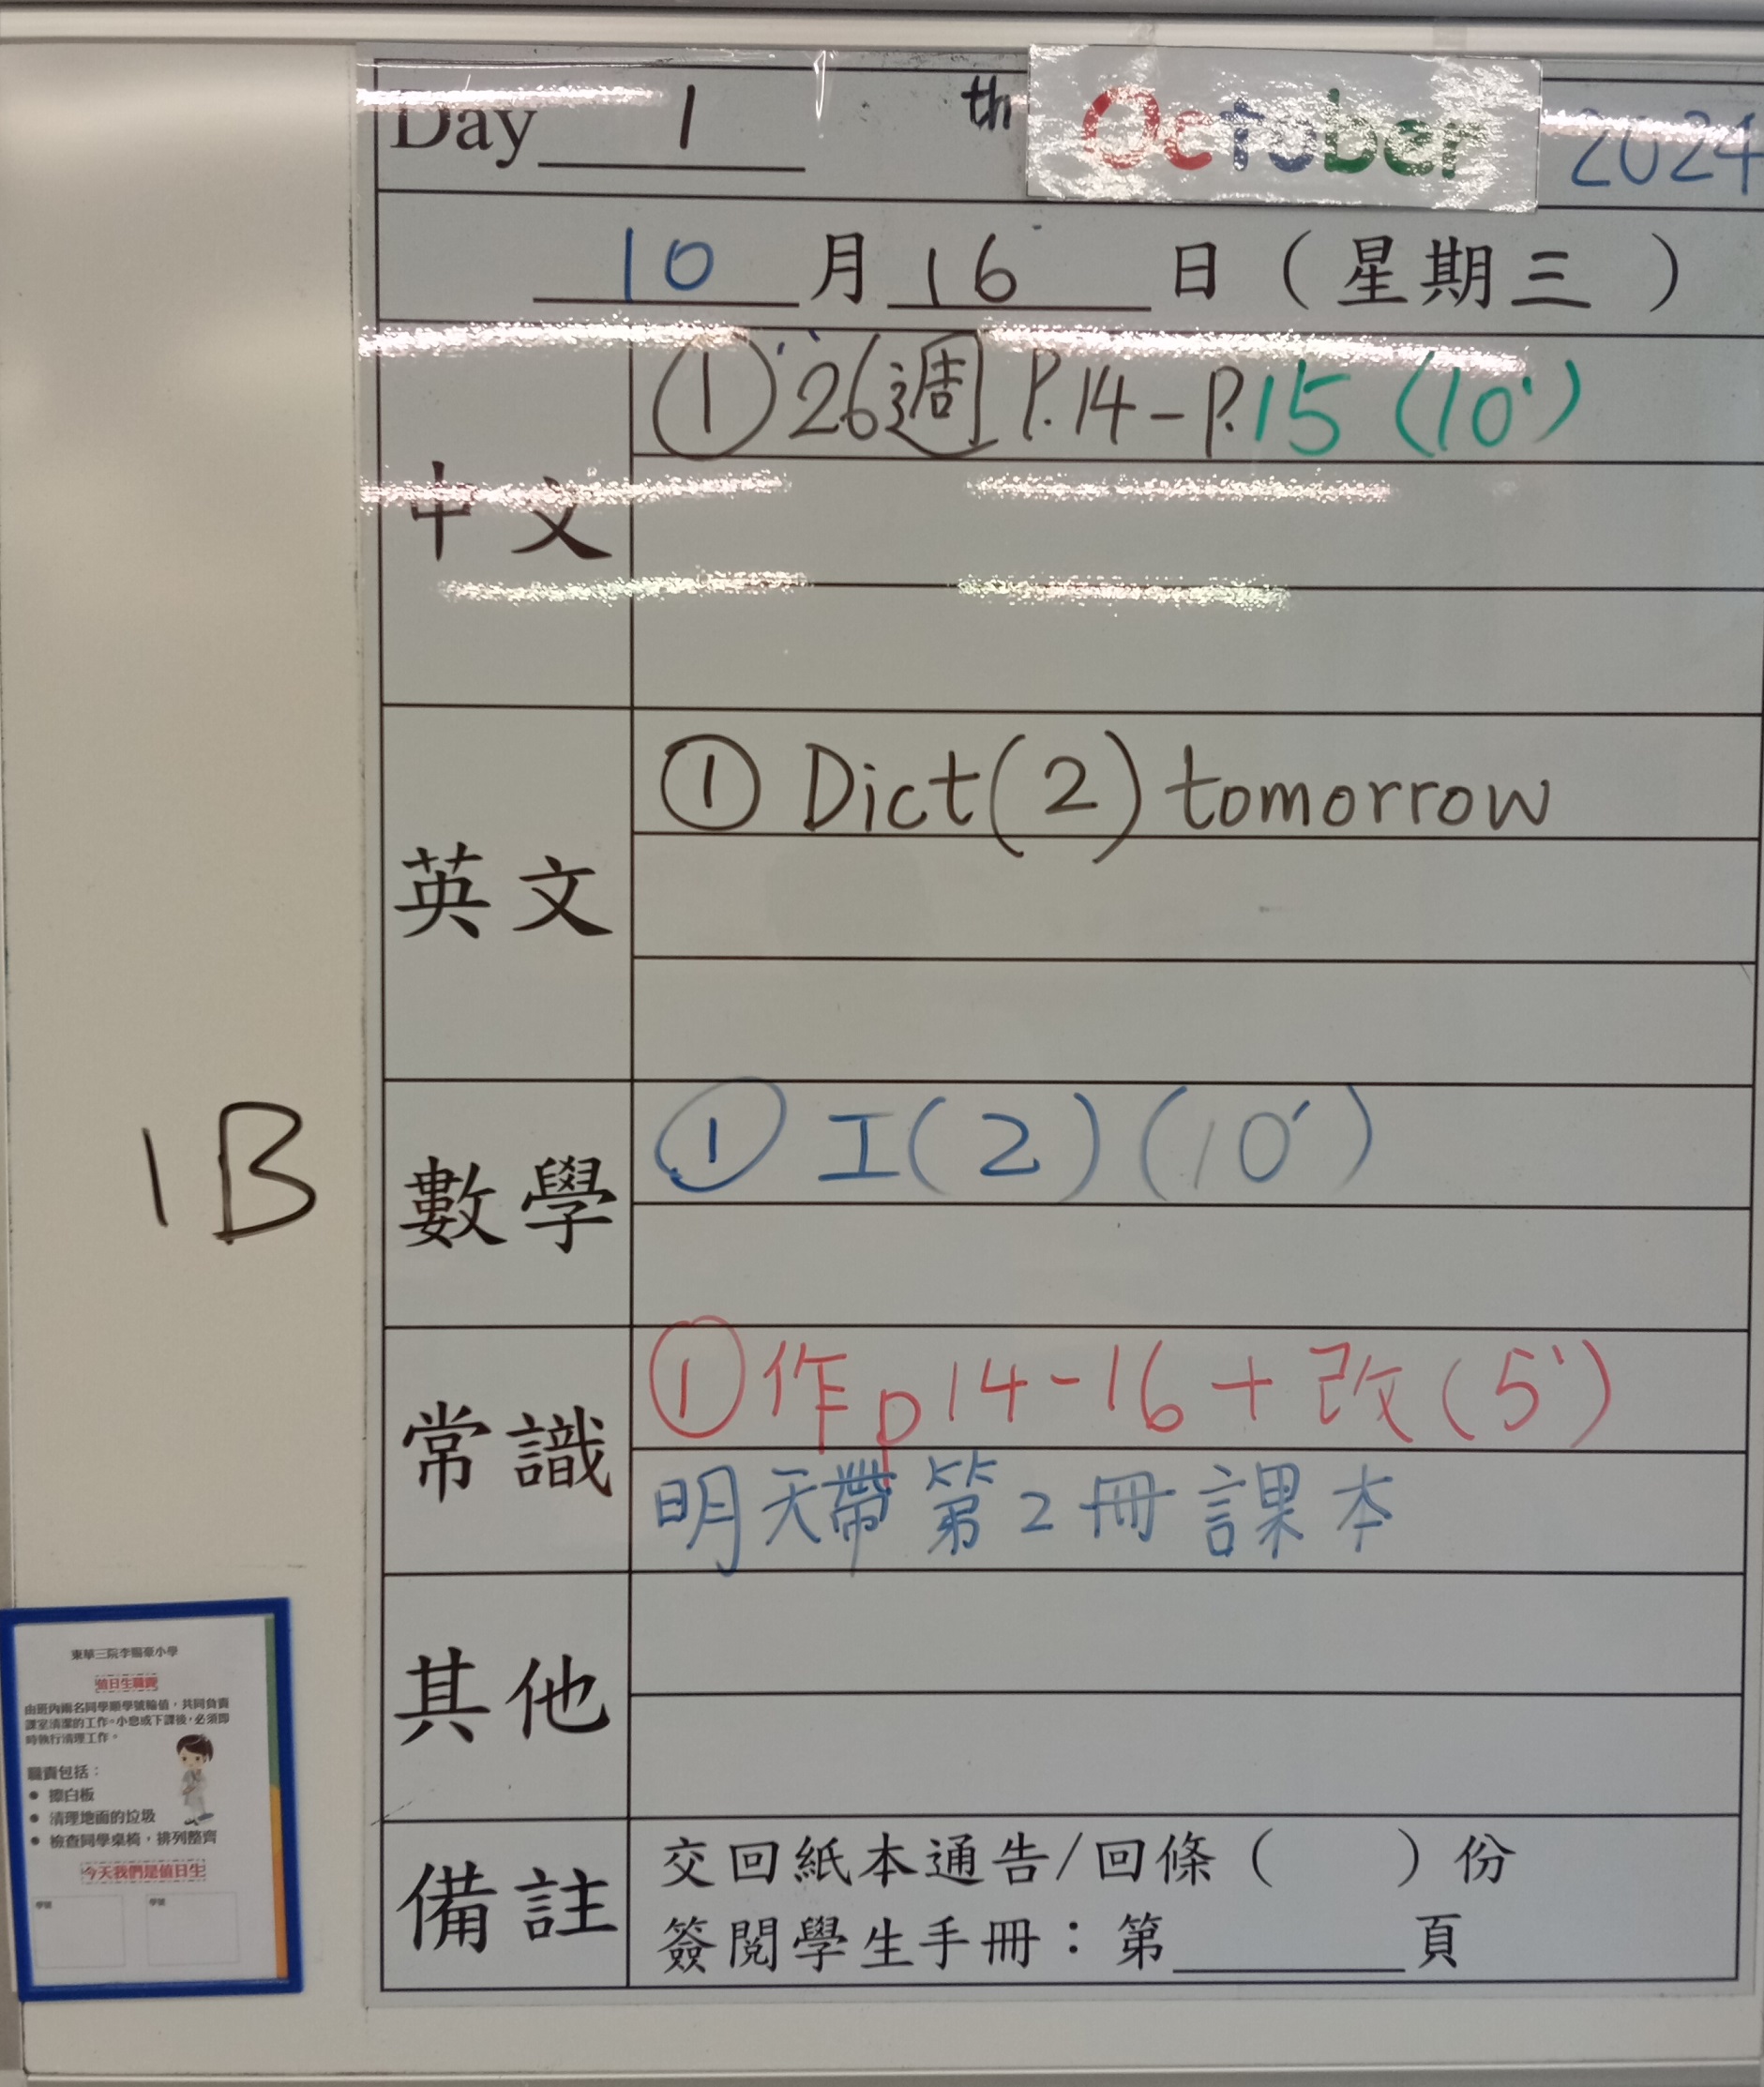 Day 1 th October 2024
10 月 16 日 ( 星期三 )
中文
① 26週 P.14-P.15 (10')
英文
① Dict(2) tomorrow
1B
數學
① I(2)(10')
常識
① 作 p14-16+改(5')
明天帶第2冊課本
其他
備註
交回紙本通告/回條 ( ) 份
簽閱學生手冊：第______頁
值日生職責
由班內兩名同學順學號輪值，共同負責
課室清潔的工作。小息或下課後，必須即
時執行清理工作。
職責包括：
● 擦白板
● 清理地面的垃圾
● 檢查同學桌椅，排列整齊
今天我們是值日生
學號 學號